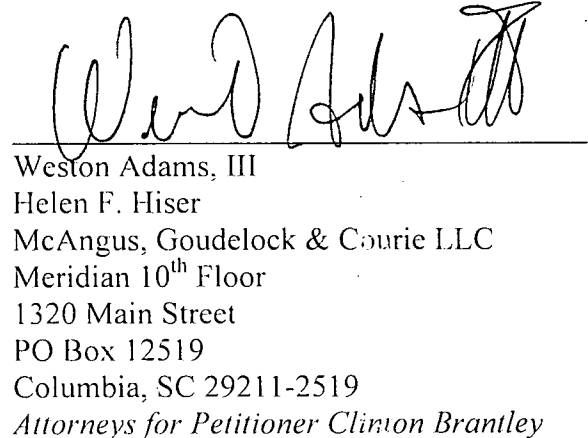 Weston Adams, III
Helen F. Hiser
McAngus, Goudelock & Courie LLC
Meridian 10th Floor
1320 Main Street
PO Box 12519
Columbia, SC 29211-2519
Attorneys for Petitioner Clinton Brantley